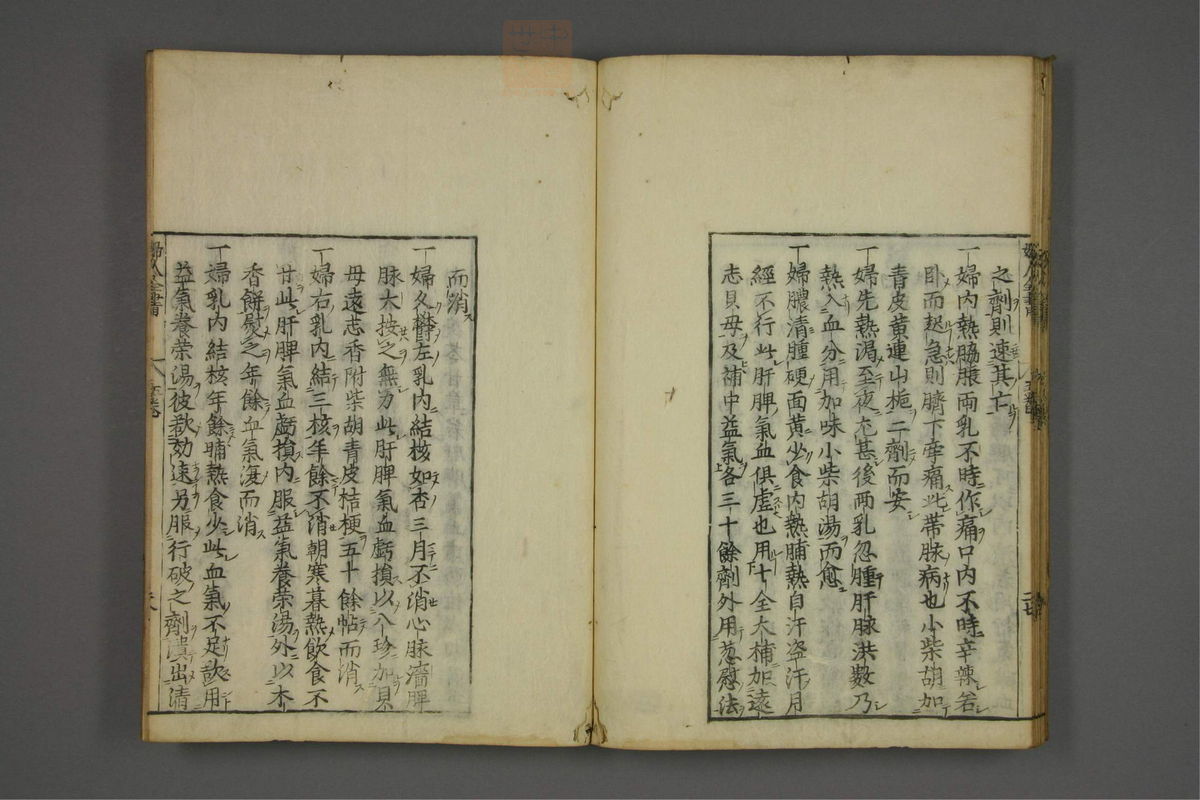 之劑則速其亡
一婦內熱脇脹兩乳不時作痛口內不時辛辣若
臥而起急則臍下牽痛此帶脉病也小柴胡加
青皮黃連山梔二劑而安
一婦先熱渴至夜尤甚後兩乳忽腫肝脉洪數乃
熱入血分用加味小柴胡湯而愈
一婦膿清腫硬面黃少食內熱晡熱自汗盗汗月
經不行此肝脾氣血俱虛也用十全大補加遠
志貝母及補中益氣各三十餘劑外用葱慰法
而消
一婦久鬱左乳內結核如杏三月不消心脉濇脾
脉大按之無力此肝脾氣血虧損以八珍加貝
母遠志香附柴胡青皮桔梗五十餘帖而消
一婦右乳內結三核年餘不消朝寒暮熱飲食不
甘此肝脾氣血虧損內服益氣養荣湯外以木
香餅熨之年餘血氣復而消
一婦乳內結核年餘晡熱食少此血氣不足欲用
益氣養荣湯彼欲効速另服行破之劑潰出清